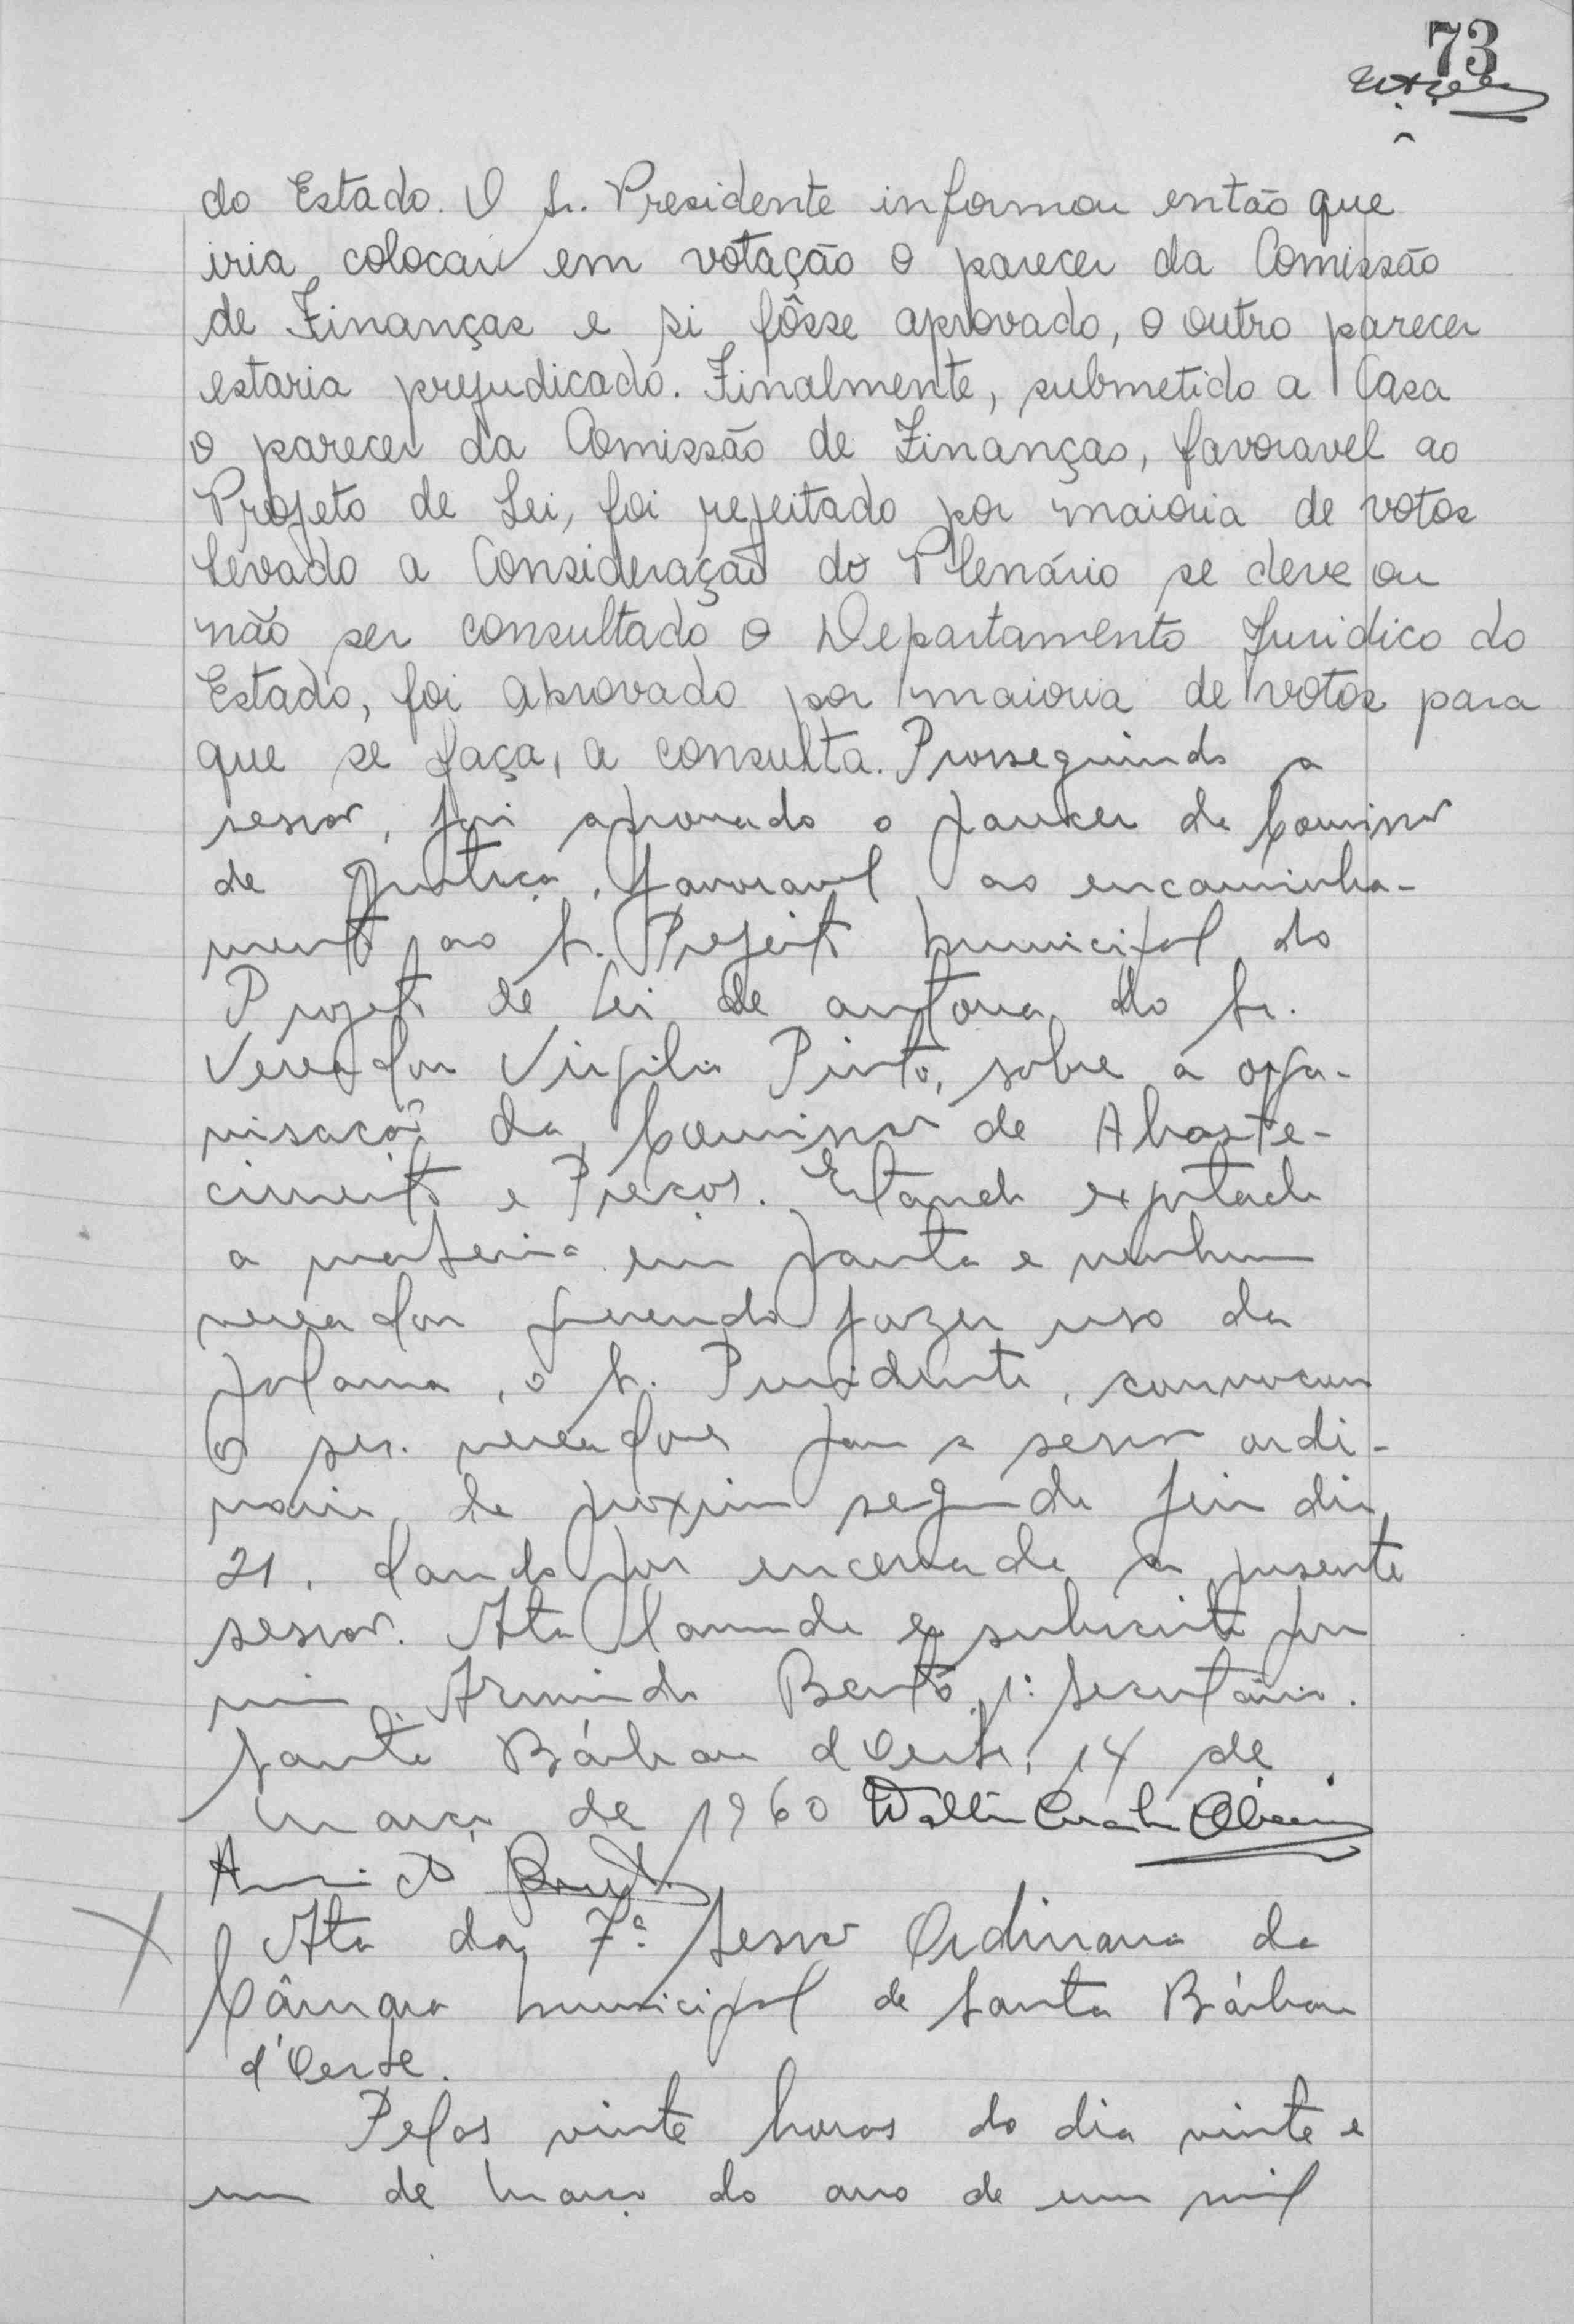 73
do Estado. O Sr. Presidente informou então que
iria colocar em votação o parecer da Comissão
de Finanças e si fôsse aprovado, o outro parecer
estaria prejudicado. Finalmente, submetido a Casa
o parecer da Comissão de Finanças, favoravel ao
Projeto de Lei, foi rejeitado por maioria de votos
levado a Consideração do Plenário se deve ou
não ser consultado o Departamento Juridico do
Estado, foi aprovado por maioria de votos para
que se faça, a consulta. Prosseguindo a
sessão, foi aprovado o parecer da Comissão
de Justiça, favoravel ao encaminha-
mento ao Sr. Prefeito Municipal do
Projeto de Lei de autoria do Sr.
Vereador Virgilio Pinto, sobre a orga-
nisação da Comissão de Abaste-
cimento e Preços. Estando exgotada
a materia em pauta e nenhum
vereador querendo fazer uso da
palavra, o Sr. Presidente, convocou
o srs. vereadores para a sessão ordi-
naria da proxima segunda feira dia
21, dando por encerrada a presente
sessão. Ata lavrada e subscrita por
mim Armindo Bento, 1º Secretário.
Santa Bárbara d'Oeste, 14 de
Março de 1960
Ata da 7ª Sessão Ordinaria da
Câmara Municipal de Santa Bárbara
d'Oeste.
Pelas vinte horas do dia vinte e
um de Março do ano de um mil